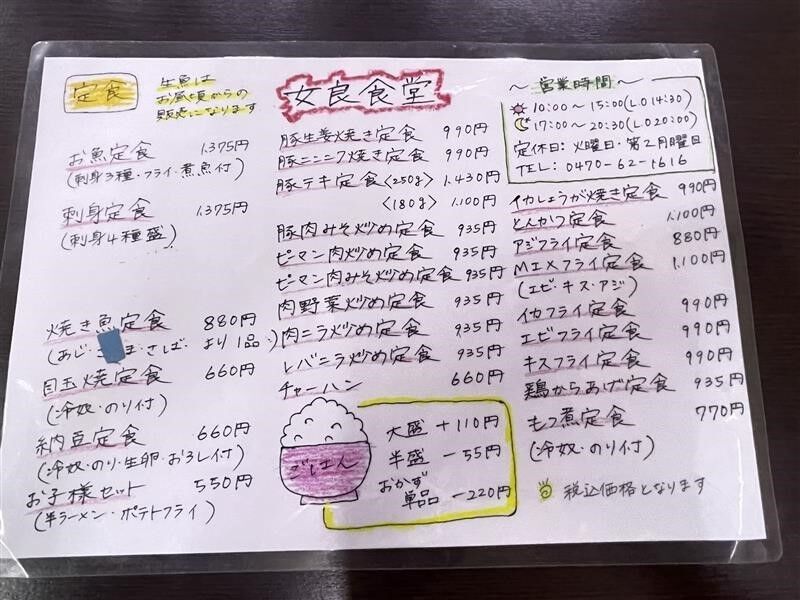 定食
生魚は
お昼頃からの
販売になります
お魚定食 1,375円
(刺身3種・フライ・煮魚付)
刺身定食 1,375円
(刺身4種盛)
焼き魚定食 880円
(あじ・ま・さば・より1品)
目玉焼定食 660円
(冷奴・のり付)
納豆定食 660円
(冷奴・のり・生卵・おろし付)
お子様セット 550円
(半ラーメン・ポテトフライ)
女良食堂
豚生姜焼き定食 990円
豚ニンニク焼き定食 990円
豚テキ定食〈250g〉 1,430円
〈180g〉 1,100円
豚肉みそ炒め定食 935円
ピーマン肉炒め定食 935円
ピーマン肉みそ炒め定食 935円
肉野菜炒め定食 935円
肉ニラ炒め定食 935円
レバニラ炒め定食 935円
チャーハン 660円
ごはん
大盛 +110円
半盛 -55円
おかず
単品 -220円
～営業時間～
10:00～15:00(LO14:30)
17:00～20:30(LO20:00)
定休日:火曜日・第2月曜日
TEL:0470-62-1616
イカしょうが焼き定食 990円
とんかつ定食 1,100円
アジフライ定食 880円
MIXフライ定食 1,100円
(エビ・キス・アジ)
イカフライ定食 990円
エビフライ定食 990円
キスフライ定食 990円
鶏からあげ定食 935円
もつ煮定食 770円
(冷奴・のり付)
税込価格となります